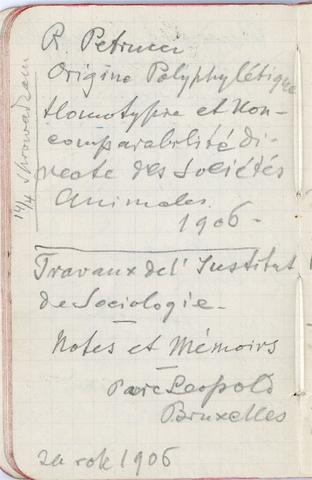 R. Petrucci
Origine Polyphylétique
Homotypie et Non-
comparabilité di-
recte des Sociétés
Animales.
1906 -
Travaux de l'Institut
de Sociologie -
Notes et Mémoirs
Parc Leopold
Bruxelles
za rok 1906
14/4 Sprowadzam